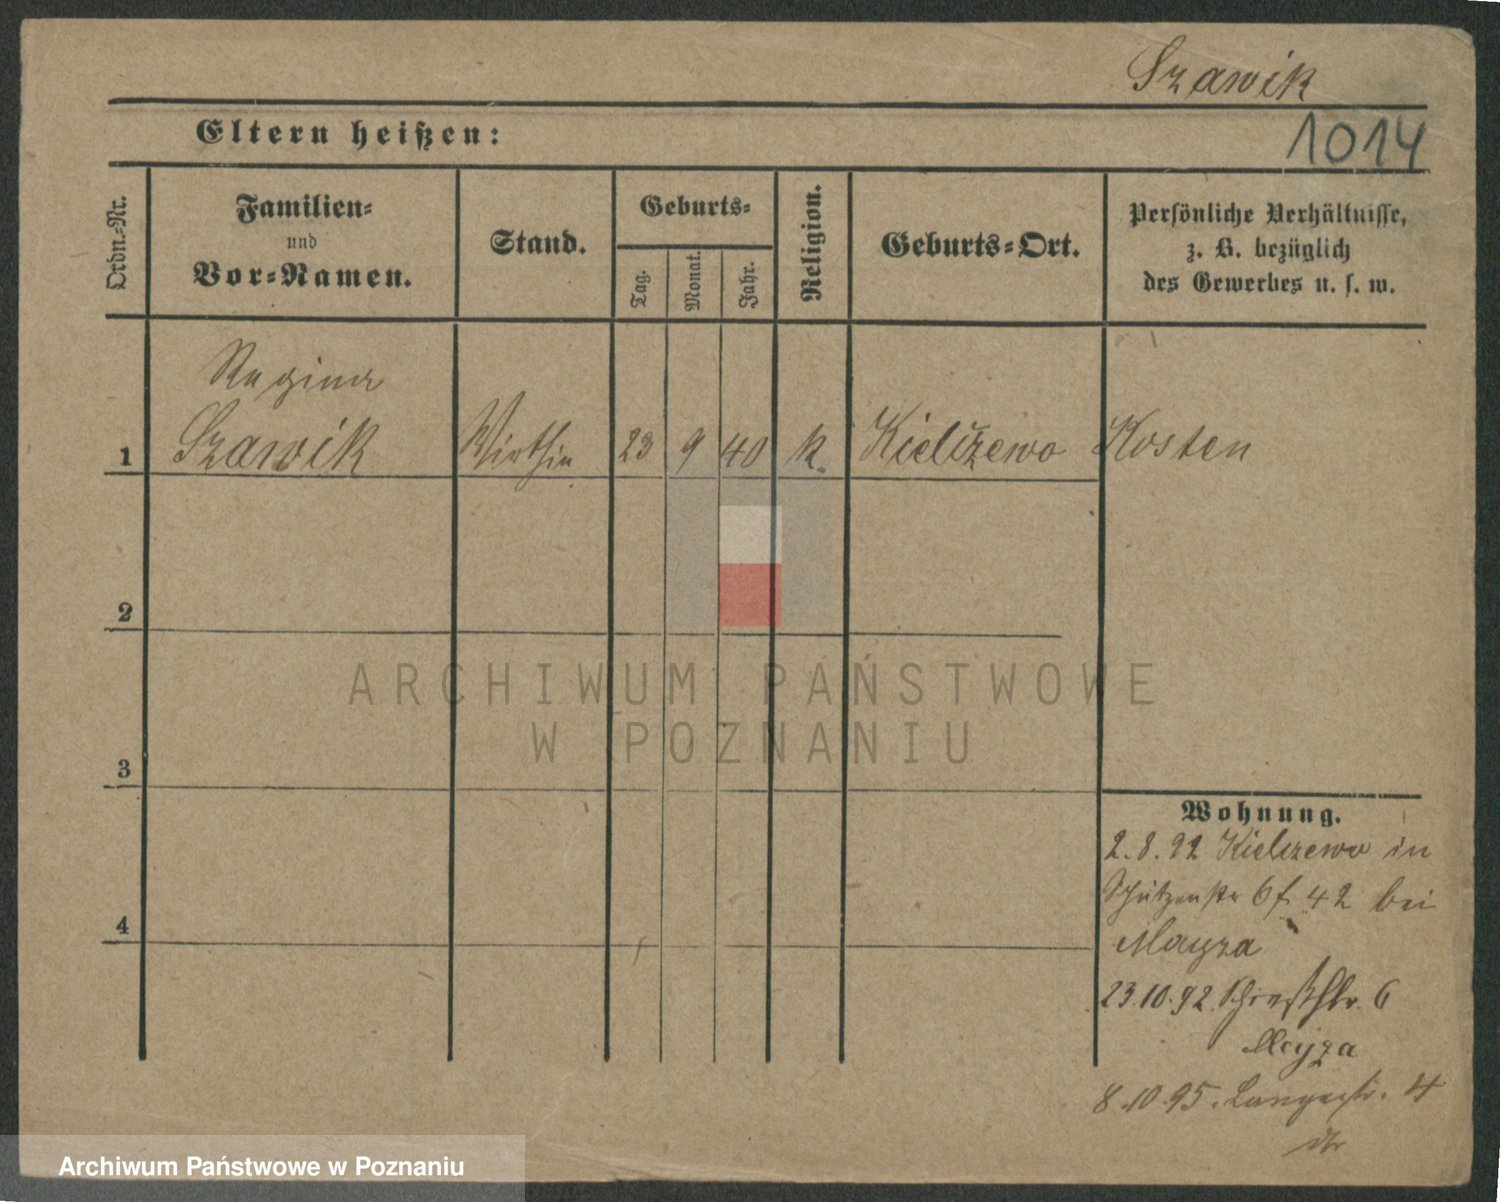 Szawik
1014
Eltern heißen:
Ordn.-Nr.
Familien-
und
Vor-Namen.
Stand.
Geburts-
Tag.
Monat.
Jahr.
Religion.
Geburts-Ort.
Persönliche Verhältnisse,
z. B. bezüglich
des Gewerbes u. s. w.
Regina
1 Szawik Wirthin 23 9 40 k. Kielczewo Kosten
2
ARCHIWUM PAŃSTWOWE
W POZNANIU
3
Wohnung.
2.8.92 Kielczewo in
Schützenstr 6 42 bei
4
23.10.92. 6
8.10.95. Langestr. 4
Archiwum Państwowe w Poznaniu